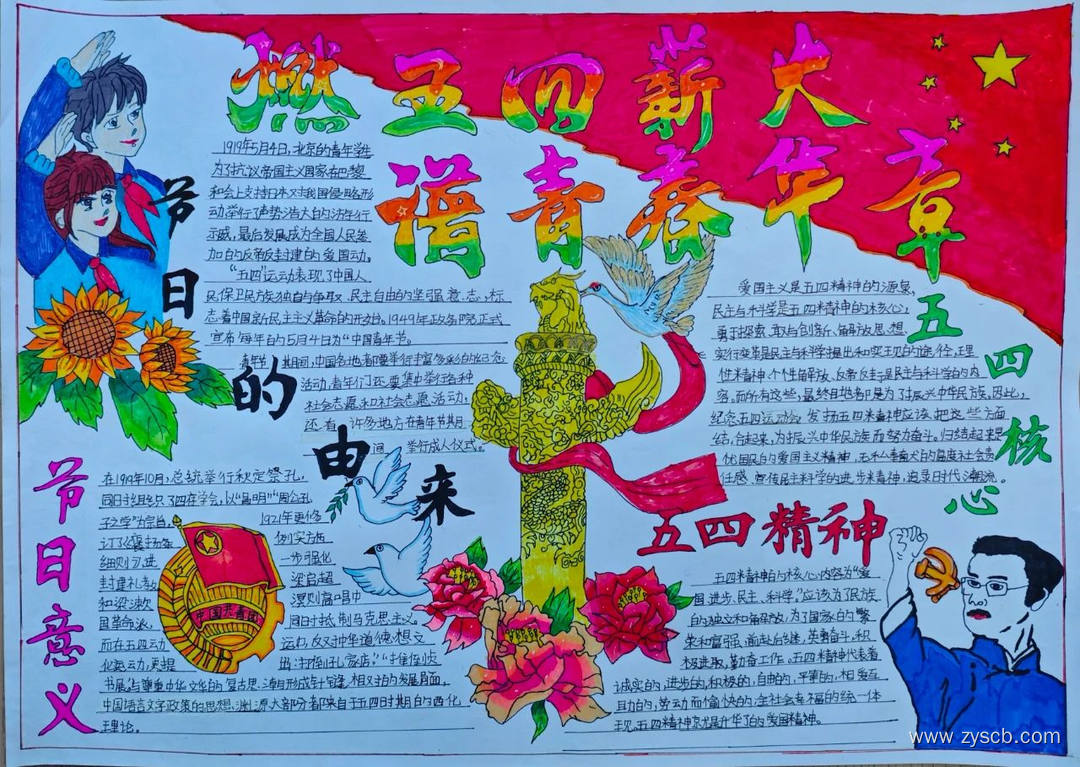 燃五四薪火
谱青春华章
节日的由来
1919年5月4日,北京的青年学生
为了抗议帝国主义国家在巴黎
和会上支持日本对我国侵略形
动举行了声势浩大的济年行
示威,最后发展成为全国人民参
加的反帝反封建的爱国动。
“五四”运动表现了中国人
民保卫民族独自与争取、民主自由的坚强意、志,标
志着中国新民主主义革命的开始。1949年政务院正式
宣布每年的5月4日为“中国青年节。
青年节期间,中国各地都要举行丰富多彩的纪念
活动,青年们还要集中举行各种
社会志愿和社会志愿活动,
还有许多地方在青年节期
间,举行成人仪式。
五四核心
爱国主义是五四精神的源泉,
民主与科学是五四精神的核心,
勇于探索、敢与创新、解放思想、
实行变革是民主与科学提出和实现的途径,理
性精神、个性解放、反帝反封是民主与科学的内
容。而所有这些,最终目地者卩是为了振兴中华民族。因此,
纪念五四运动会 发扬五四精神应该把这些方面
结合起来,为振兴中华民族而努力奋斗。归结起来是
忧国民的爱国主义精神,
任感、宣传民主科学的进步来精神,追录时代潮流。
节日意义
在1919年10月,总统举行秋定祭孔,
同日于组织了四在学会,以“昌明”“周公孔
子之学”为宗旨,
1921年更修
订了褒扬条
例实方施
细则,引进
一步强化
封建礼孝幼
梁启超
和梁漱
溟则高唱中
国革命派,
同日于抵制马克思主义。
而在五四运动
运力,反对中华道德、想文
出:打倒孔家店”“
中国语言文字政策的思想、渊源大部分都来自于五四时期的西化
理论。
中国共青团
五四精神
五四精神的核心内容为“爱
国、进步、民主、科学”应该为了民族
的独立和解放,为了国家的繁
荣和富强,前赴后继,英勇奋斗,积
极进取,勤奋工作。五四精神代表着
诚实的,进步的,积极的,自由的,平等的,相爱互
且力的,劳动而愉快的,全社会幸福的统一体
现。五四精神京尤是升华了的爱国精神。
www.zyscb.com